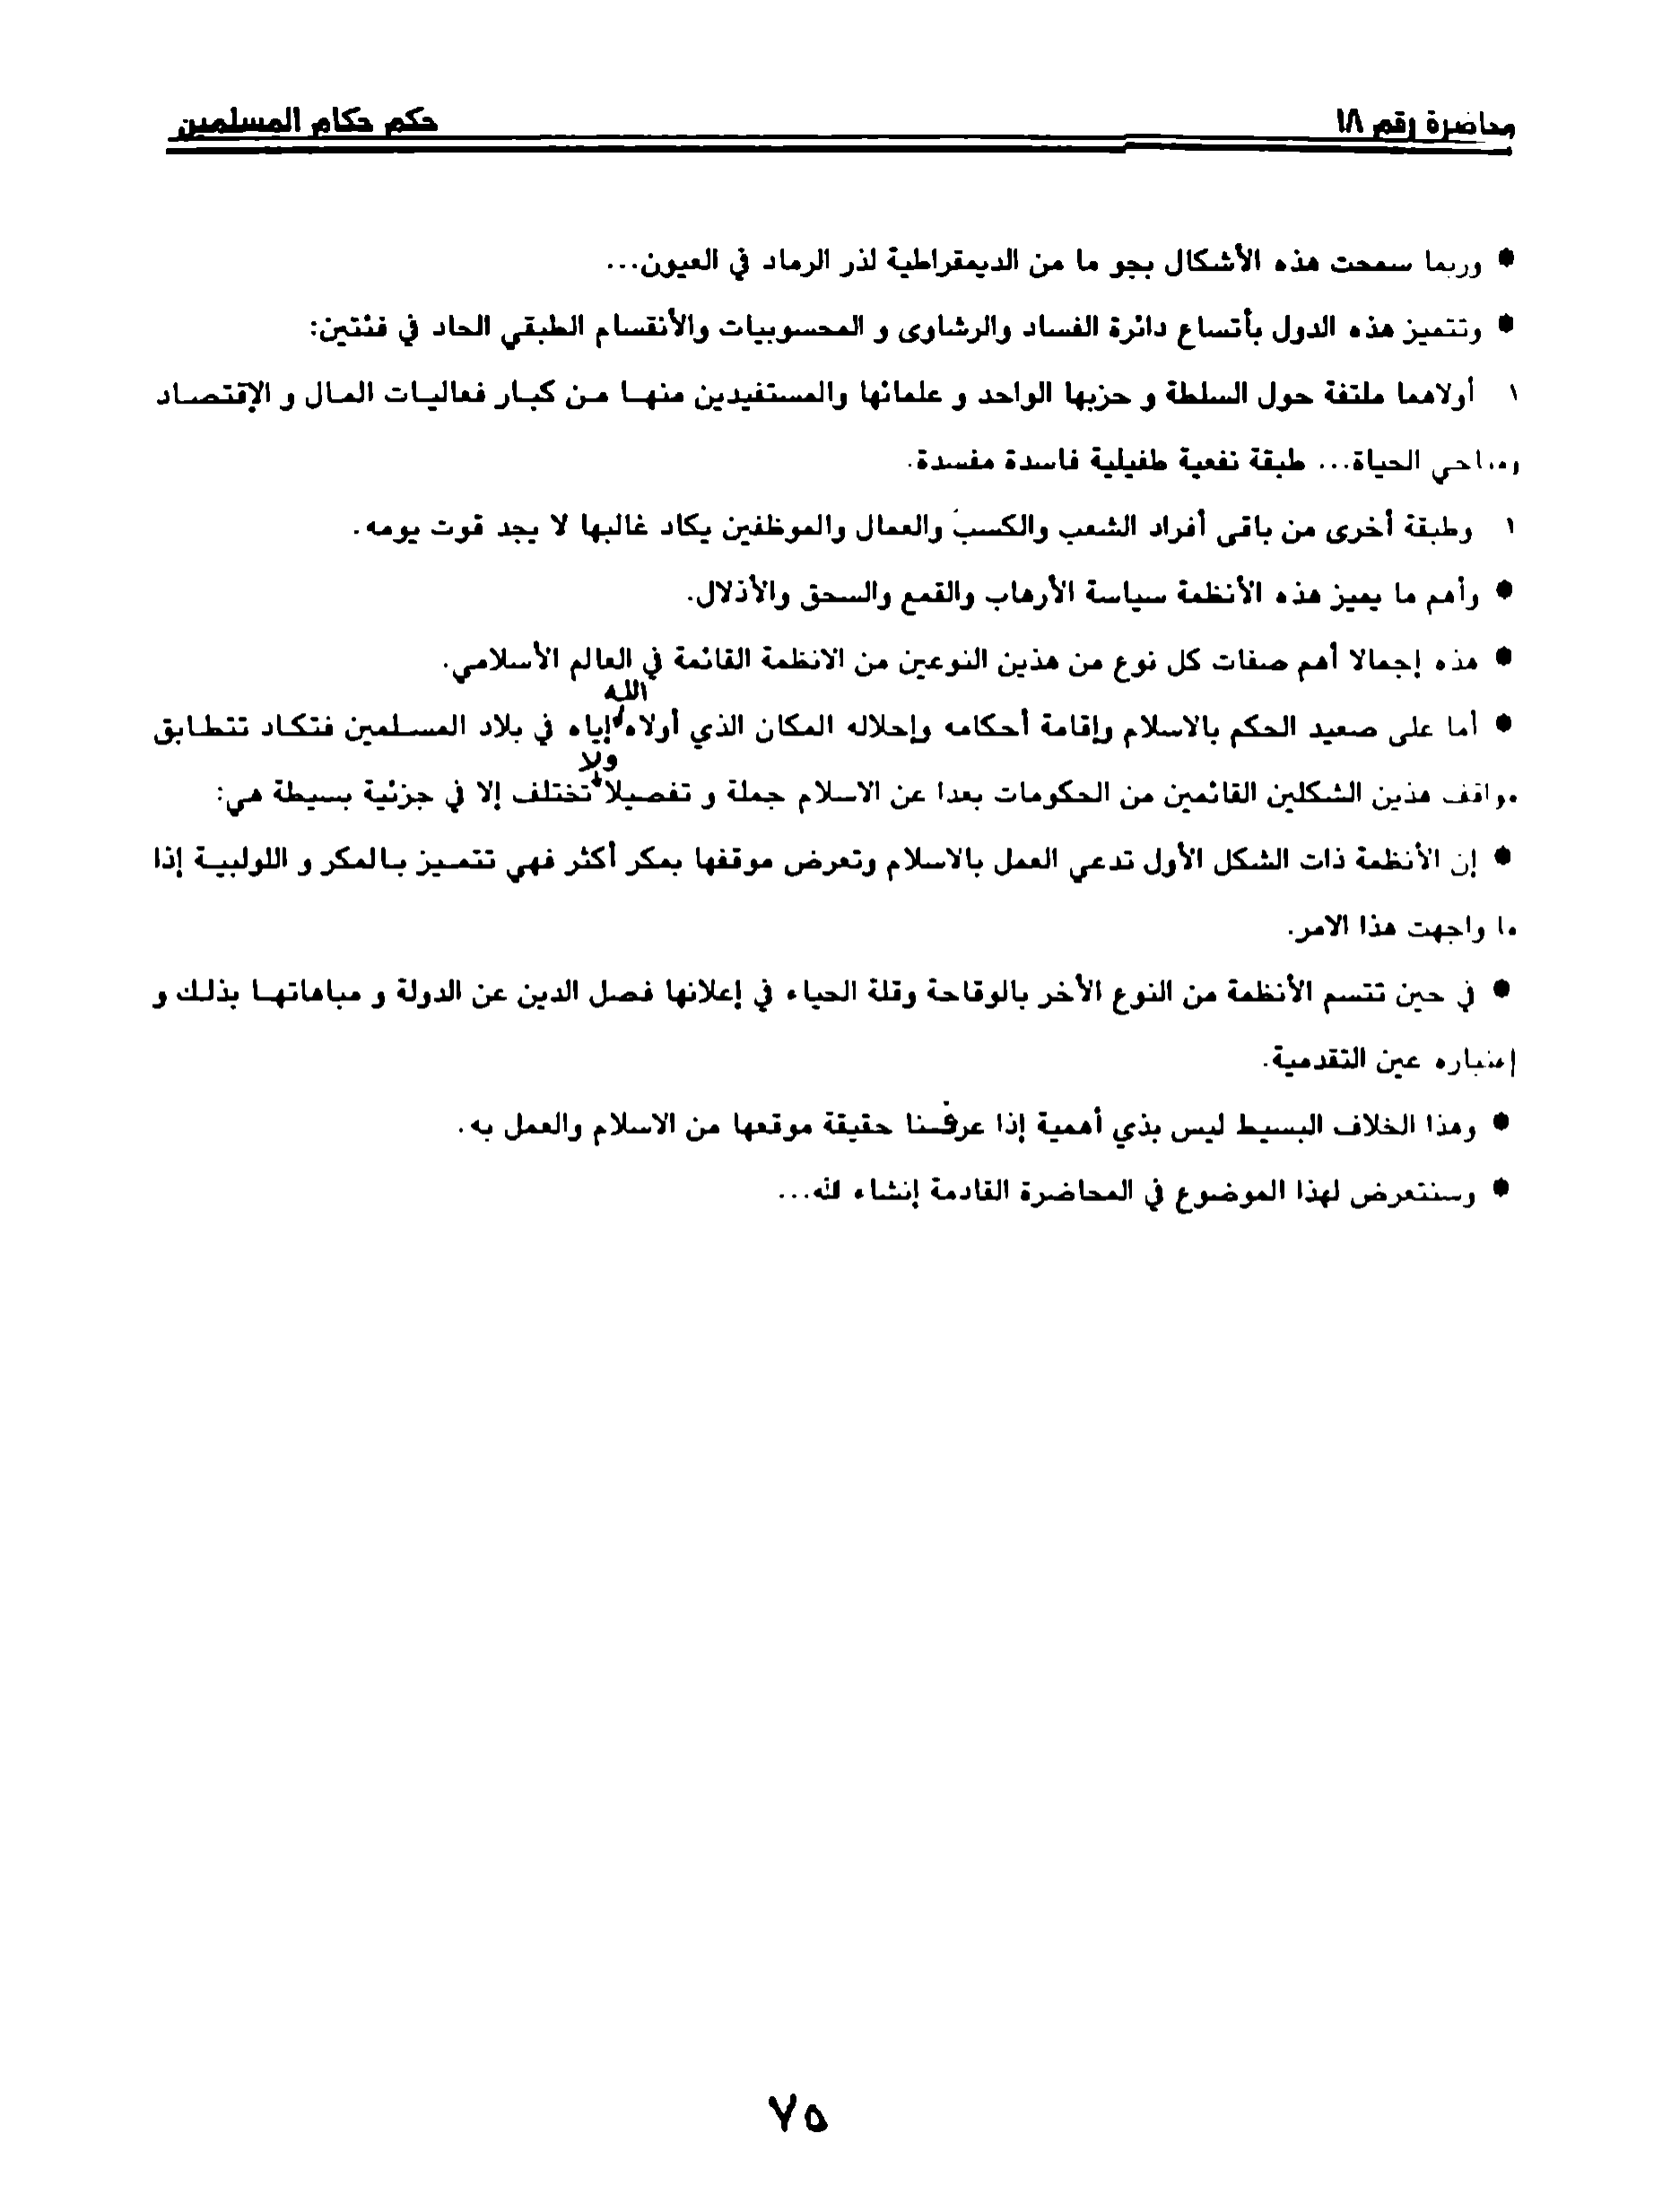 محاضرة رقم ١٨ حكم حكام المسلمين
• وربما سمحت هذه الأشكال بجو ما من الديمقراطية لذر الرماد في العيون...
• وتتميز هذه الدول بأتساع دائرة الفساد والرشاوى و المحسوبيات والأنقسام الطبقي الحاد في فئتين:
١ أولاهما ملتفة حول السلطة و حزبها الواحد و علمائها والمستفيدين منها من كبار فعاليات المال و الإقتصاد
ومناحي الحياة... طبقة نفعية طفيلية فاسدة مفسدة.
١ وطبقة أخرى من باقى أفراد الشعب والكسب والعمال والموظفين يكاد غالبها لا يجد قوت يومه.
• وأهم ما يميز هذه الأنظمة سياسة الأرهاب والقمع والسحق والأذلال.
• هذه إجمالا أهم صفات كل نوع من هذين النوعين من الانظمة القائمة في العالم الأسلامي.
• أما على صعيد الحكم بالاسلام وإقامة أحكامه وإحلاله المكان الذي أولاه الله إياه في بلاد المسلمين فتكاد تتطابق
مواقف هذين الشكلين القائمين من الحكومات بعدا عن الاسلام جملة و تفصيلا ولا تختلف إلا في جزئية بسيطة هي:
• إن الأنظمة ذات الشكل الأول تدعي العمل بالاسلام وتعرض موقفها بمكر أكثر فهي تتميز بالمكر و اللولبية إذا
ما واجهت هذا الامر.
• في حين تتسم الأنظمة من النوع الأخر بالوقاحة وقلة الحياء في إعلانها فصل الدين عن الدولة و مباهاتها بذلك و
إعتباره عين التقدمية.
• وهذا الخلاف البسيط ليس بذي أهمية إذا عرفنا حقيقة موقعها من الاسلام والعمل به.
• وسنتعرض لهذا الموضوع في المحاضرة القادمة إنشاء لله...
٧٥